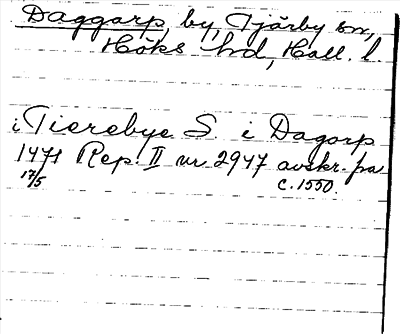 Daggarp, by, Tjärby sn,
Höks hd, Hall. l.
i Tierebye S. i Dagorp
1471 Rep. II nr 2947 avskr. pa
17/5 c. 1550.